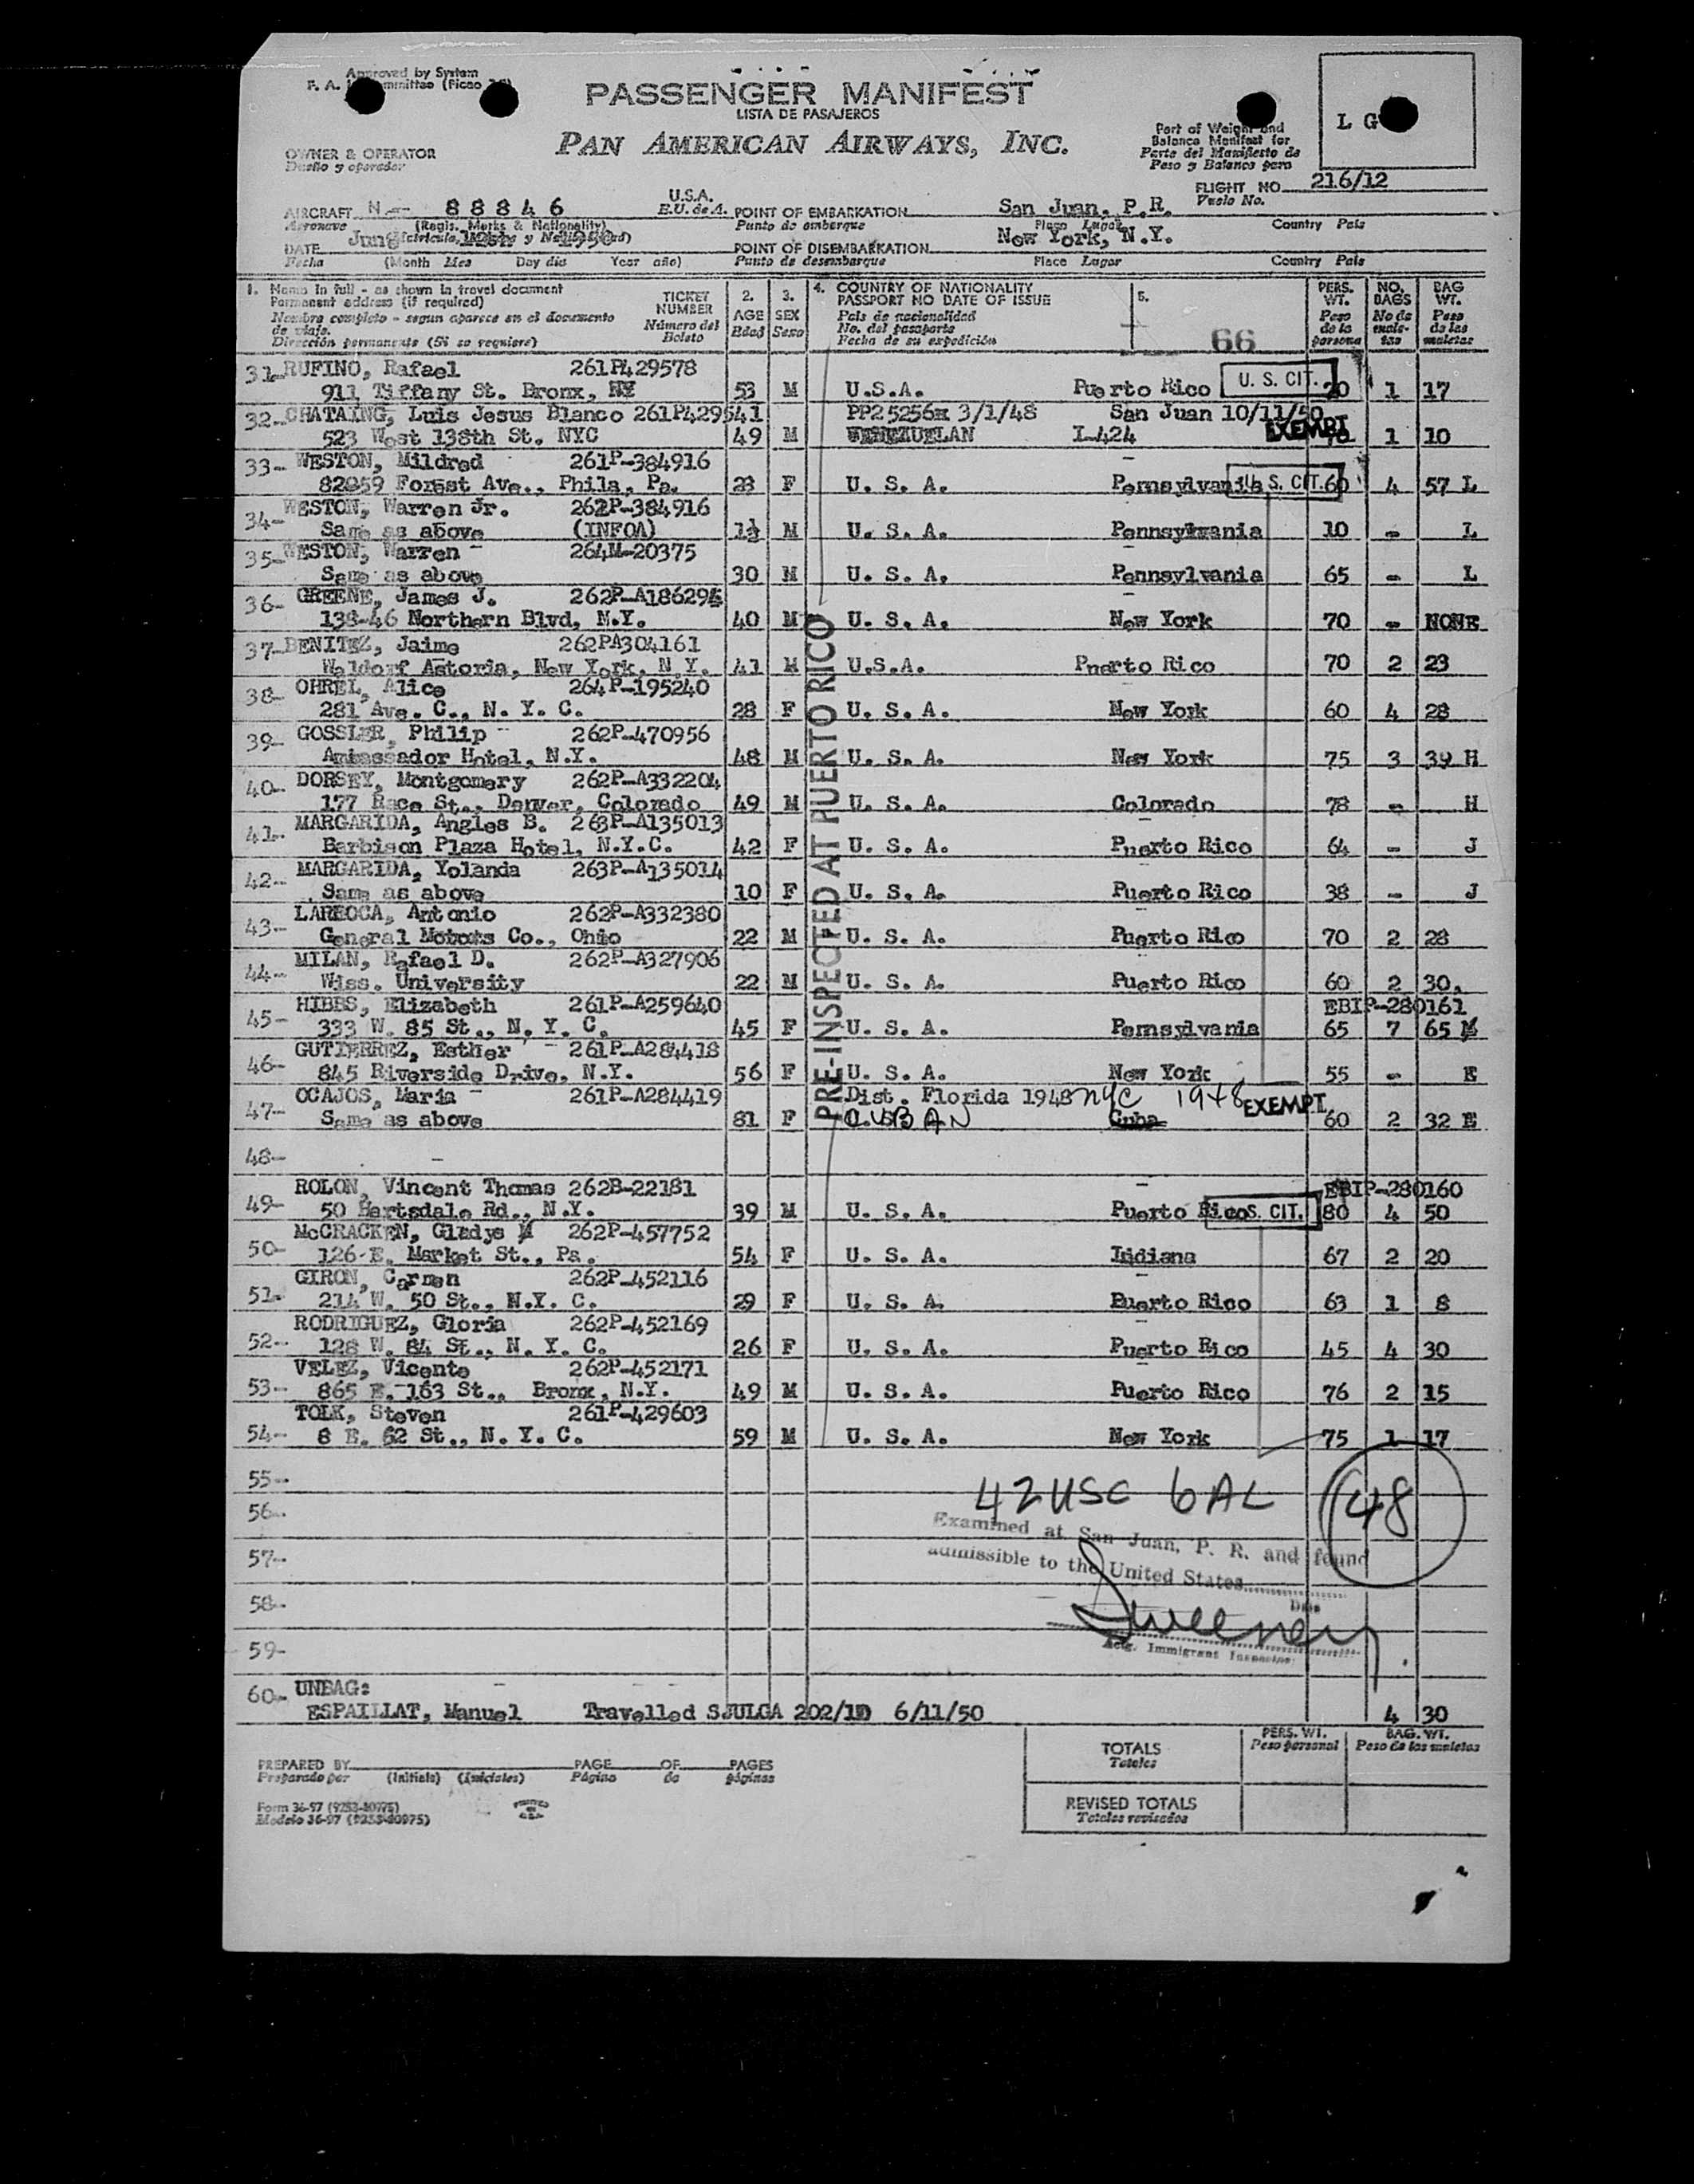 Approved by System
PASSENGER MANIFEST
LISTA DE PASAJEROS
PAN AMERICAN AIRWAYS, INC.
L G
Part of Weight and
Balance Manifest for
Parte del Manifiesto de
Peso y Balance para
OWNER & OPERATOR
Dueño y operador
FLIGHT NO. 216/12
Vuelo No.
AIRCRAFT N-- 88846 U.S.A.
E.U. de A.
POINT OF EMBARKATION San Juan, P.R.
Aeronave (Regis. Marks & Nationality) Punto de embarque Place Lugar Country País
DATE June
POINT OF DISEMBARKATION New York, N.Y.
Fecha (Month Mes Day día Year año) Punto de desembarque Place Lugar Country País
1. Name in full - as shown in travel document
Permanent address (if required)
Nombre completo - segun aparece en el documento
de viaje.
Dirección permanente (Si se requiere)
TICKET
NUMBER
Número del
Boleto
2.
AGE
Edad
3.
SEX
Sexo
4. COUNTRY OF NATIONALITY
PASSPORT NO DATE OF ISSUE
País de nacionalidad
No. del pasaporte
Fecha de su expedición
5.
66
PERS.
WT.
Peso
de la
persona
NO.
BAGS
No de
male-
tas
BAG
WT.
Peso
de las
maletas
31- RUFINO, Rafael 261P429578
911 Tiffany St. Bronx, NY 53 M U.S.A. Puerto Rico U. S. CIT. 1 17
32- CHATAING, Luis Jesus Blanco 261P429541 PP2 5256 3/1/48 San Juan 10/11/50
523 West 138th St. NYC 49 M VENEZUELAN I-424 EXEMPT 1 10
33- WESTON, Mildred 261P-384916
Forest Ave., Phila, Pa. 23 F U. S. A. Pennsylvania U. S. CIT. 60 4 57 L
34- WESTON, Warren Jr. 262P-384916
Same as above (INFOA) 1½ M U. S. A. Pennsylvania 10 - L
35- WESTON, Warren 264M-20375
Same as above 30 M U. S. A. Pennsylvania 65 - L
36- GREENE, James J. 262P-A186294
138-46 Northern Blvd, N.Y. 40 M U. S. A. New York 70 - NONE
37- BENITEZ, Jaime 262PA304161
Waldorf Astoria, New York, N.Y. 41 M U.S.A. Puerto Rico 70 2 23
38- OHREL, Alice 264P-195240
281 Ave. C., N. Y. C. 28 F U. S. A. New York 60 4 28
39- GOSSLER, Philip 262P-470956
Ambassador Hotel, N.Y. 48 M U. S. A. New York 75 3 39 H
40- DORSEY, Montgomery 262P-A332204
177 Race St., Denver, Colorado 49 M U. S. A. Colorado 78 - H
41- MARGARIDA, Angles B. 263P-A135013
Barbison Plaza Hotel, N.Y.C. 42 F U. S. A. Puerto Rico 64 - J
42- MARGARIDA, Yolanda 263P-A135014
Same as above 10 F U. S. A. Puerto Rico 38 - J
43- LAROCA, Antonio 262P-A332380
General Motors Co., Ohio 22 M U. S. A. Puerto Rico 70 2 28
44- MILAN, Rafael D. 262P-A327906
Wiss. University 22 M U. S. A. Puerto Rico 60 2 30.
45- HIBBS, Elizabeth 261P-A259640 EBIP-280161
333 W. 85 St., N. Y. C. 45 F U. S. A. Pernsylvania 65 7 65
46- GUTIERREZ, Esther 261P-A284418
845 Riverside Drive, N.Y. 56 F U. S. A. New York 55 - E
47- OCAJOS, Maria 261P-A284419 Dist. Florida 1948 NYC 1948 EXEMPT
Same as above 81 F CUBAN Cuba 60 2 32 E
PRE-INSPECTED AT PUERTO RICO
48-
49- ROLON, Vincent Thomas 262B-22181 EBIP-280160
50 Hartsdale Rd., N.Y. 39 M U. S. A. Puerto Rico U.S. CIT. 80 4 50
50- McCRACKEN, Gladys M 262P-457752
126 E. Market St., Pa. 54 F U. S. A. Indiana 67 2 20
51- GIRON, Carmen 262P-452116
214 W. 50 St., N.Y. C. 29 F U. S. A. Puerto Rico 63 1 8
52- RODRIGUEZ, Gloria 262P-452169
128 W. 84 St., N. Y. C. 26 F U. S. A. Puerto Rico 45 4 30
53- VELEZ, Vicente 262P-452171
865 E. 163 St., Bronx, N.Y. 49 M U. S. A. Puerto Rico 76 2 15
54- TOLK, Steven 261P-429603
8 E. 62 St., N. Y. C. 59 M U. S. A. New York 75 1 17
55-
42 USC 6 AL 48
56-
Examined at San Juan, P. R. and found
57-
admissible to the United States
Date
58-
Sweeney
59-
Actg. Immigrant Inspector
60- UNBAG:
ESPAILLAT, Manuel Travelled SJULGA 202/1D 6/11/50 4 30
PREPARED BY PAGE OF PAGES
Preparado por (Initials) (Iniciales) Página de páginas
TOTALS
Totales
PERS. WT.
Peso personal
BAG. WT.
Peso de las maletas
REVISED TOTALS
Totales revisados
Form 36-97 (9253-80975)
Modelo 36-97 (9253-80975)